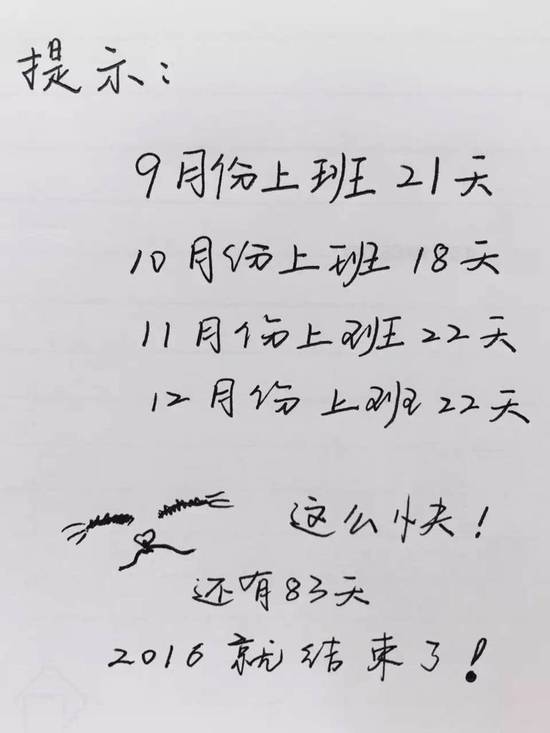 提示：
9月份上班21天
10月份上班18天
11月份上班22天
12月份上班22天
这么快！
还有83天
2016就结束了！